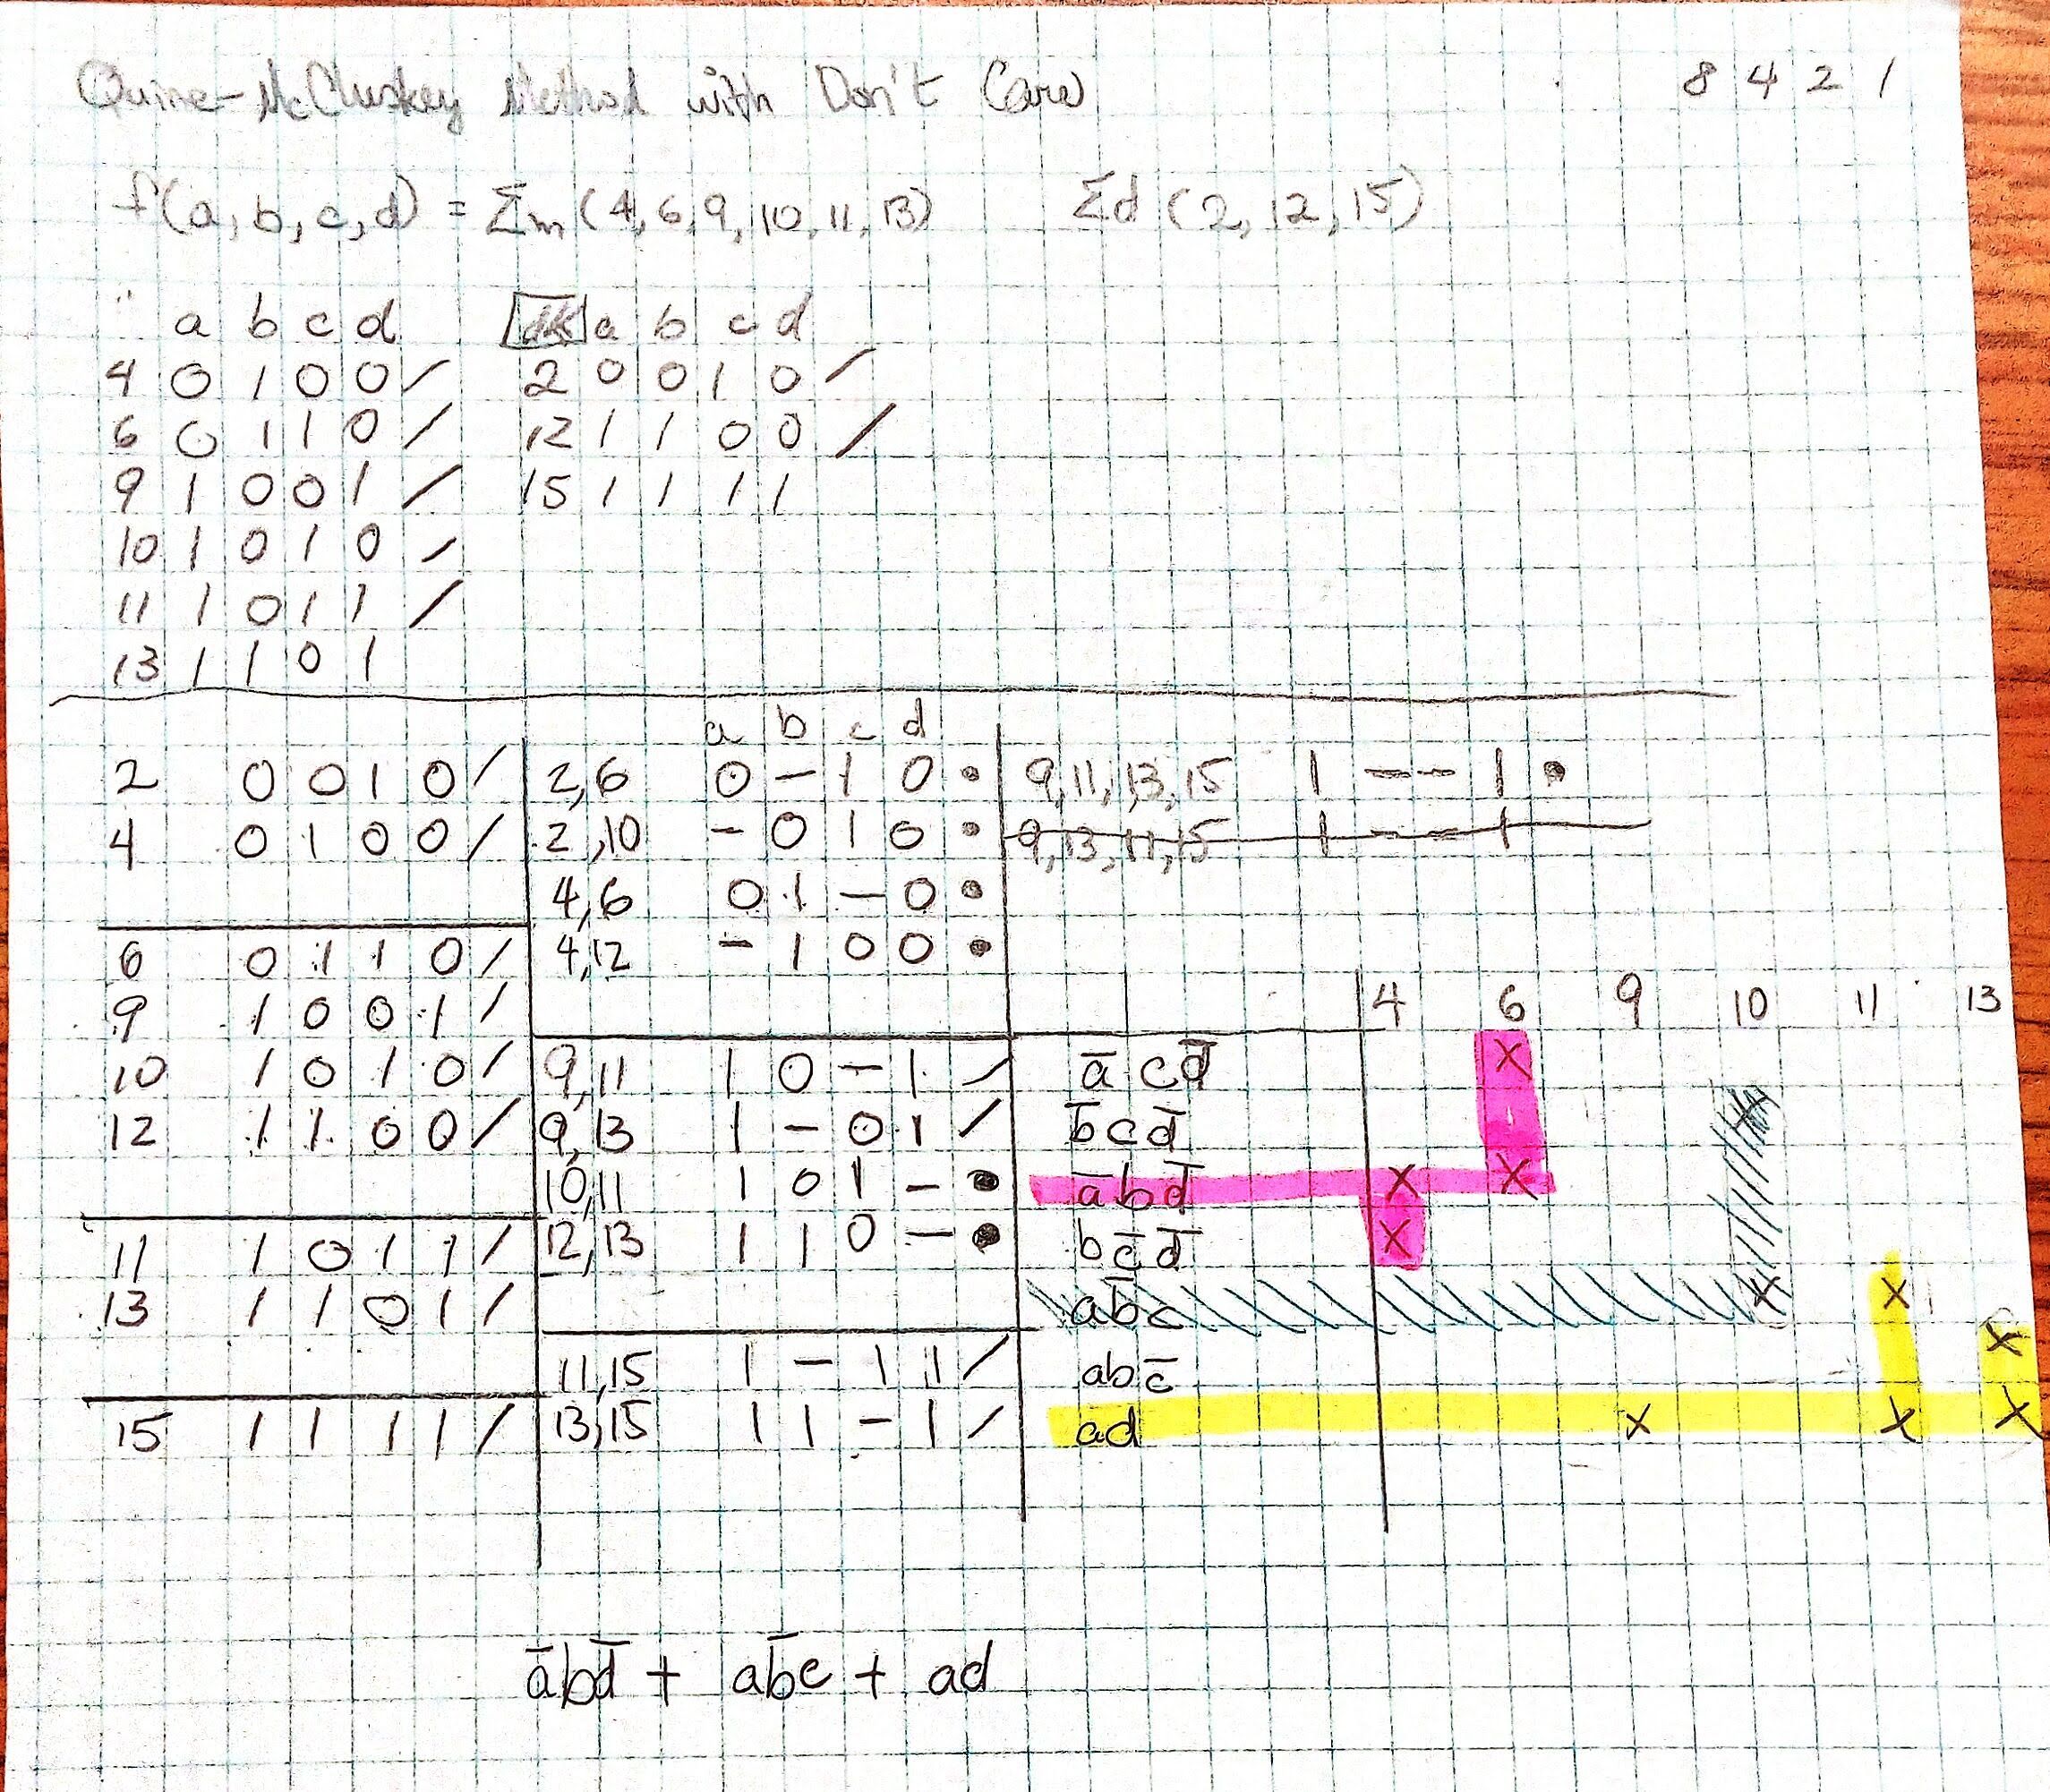 Quine-McCluskey Method with Don't Care 8 4 2 1
f(a,b,c,d) = Σm (4,6,9,10,11,13) Σd (2,12,15)
a b c d a b c d
4 0 1 0 0 / 2 0 0 1 0 /
6 0 1 1 0 / 12 1 1 0 0 /
9 1 0 0 1 / 15 1 1 1 1
10 1 0 1 0 /
11 1 0 1 1 /
13 1 1 0 1
2 0 0 1 0 /
4 0 1 0 0 /
6 0 1 1 0 /
9 1 0 0 1 /
10 1 0 1 0 /
12 1 1 0 0 /
11 1 0 1 1 /
13 1 1 0 1 /
15 1 1 1 1 /
a b c d
2,6 0 – 1 0 •
2,10 – 0 1 0 •
4,6 0 1 – 0 •
4,12 – 1 0 0 •
9,11 1 0 – 1 /
9,13 1 – 0 1 /
10,11 1 0 1 – •
12,13 1 1 0 – •
11,15 1 – 1 1 /
13,15 1 1 – 1 /
9,11,13,15 1 – – 1 •
9,13,11,15 1 – – 1
4 6 9 10 11 13
a̅ c d̅ x
b̅ c d̅ x
a̅ b d̅ x x
b c̅ d̅ x
a b̅ c x x
a b c̅ x
a d x x x
a̅bd̅ + ab̅c + ad